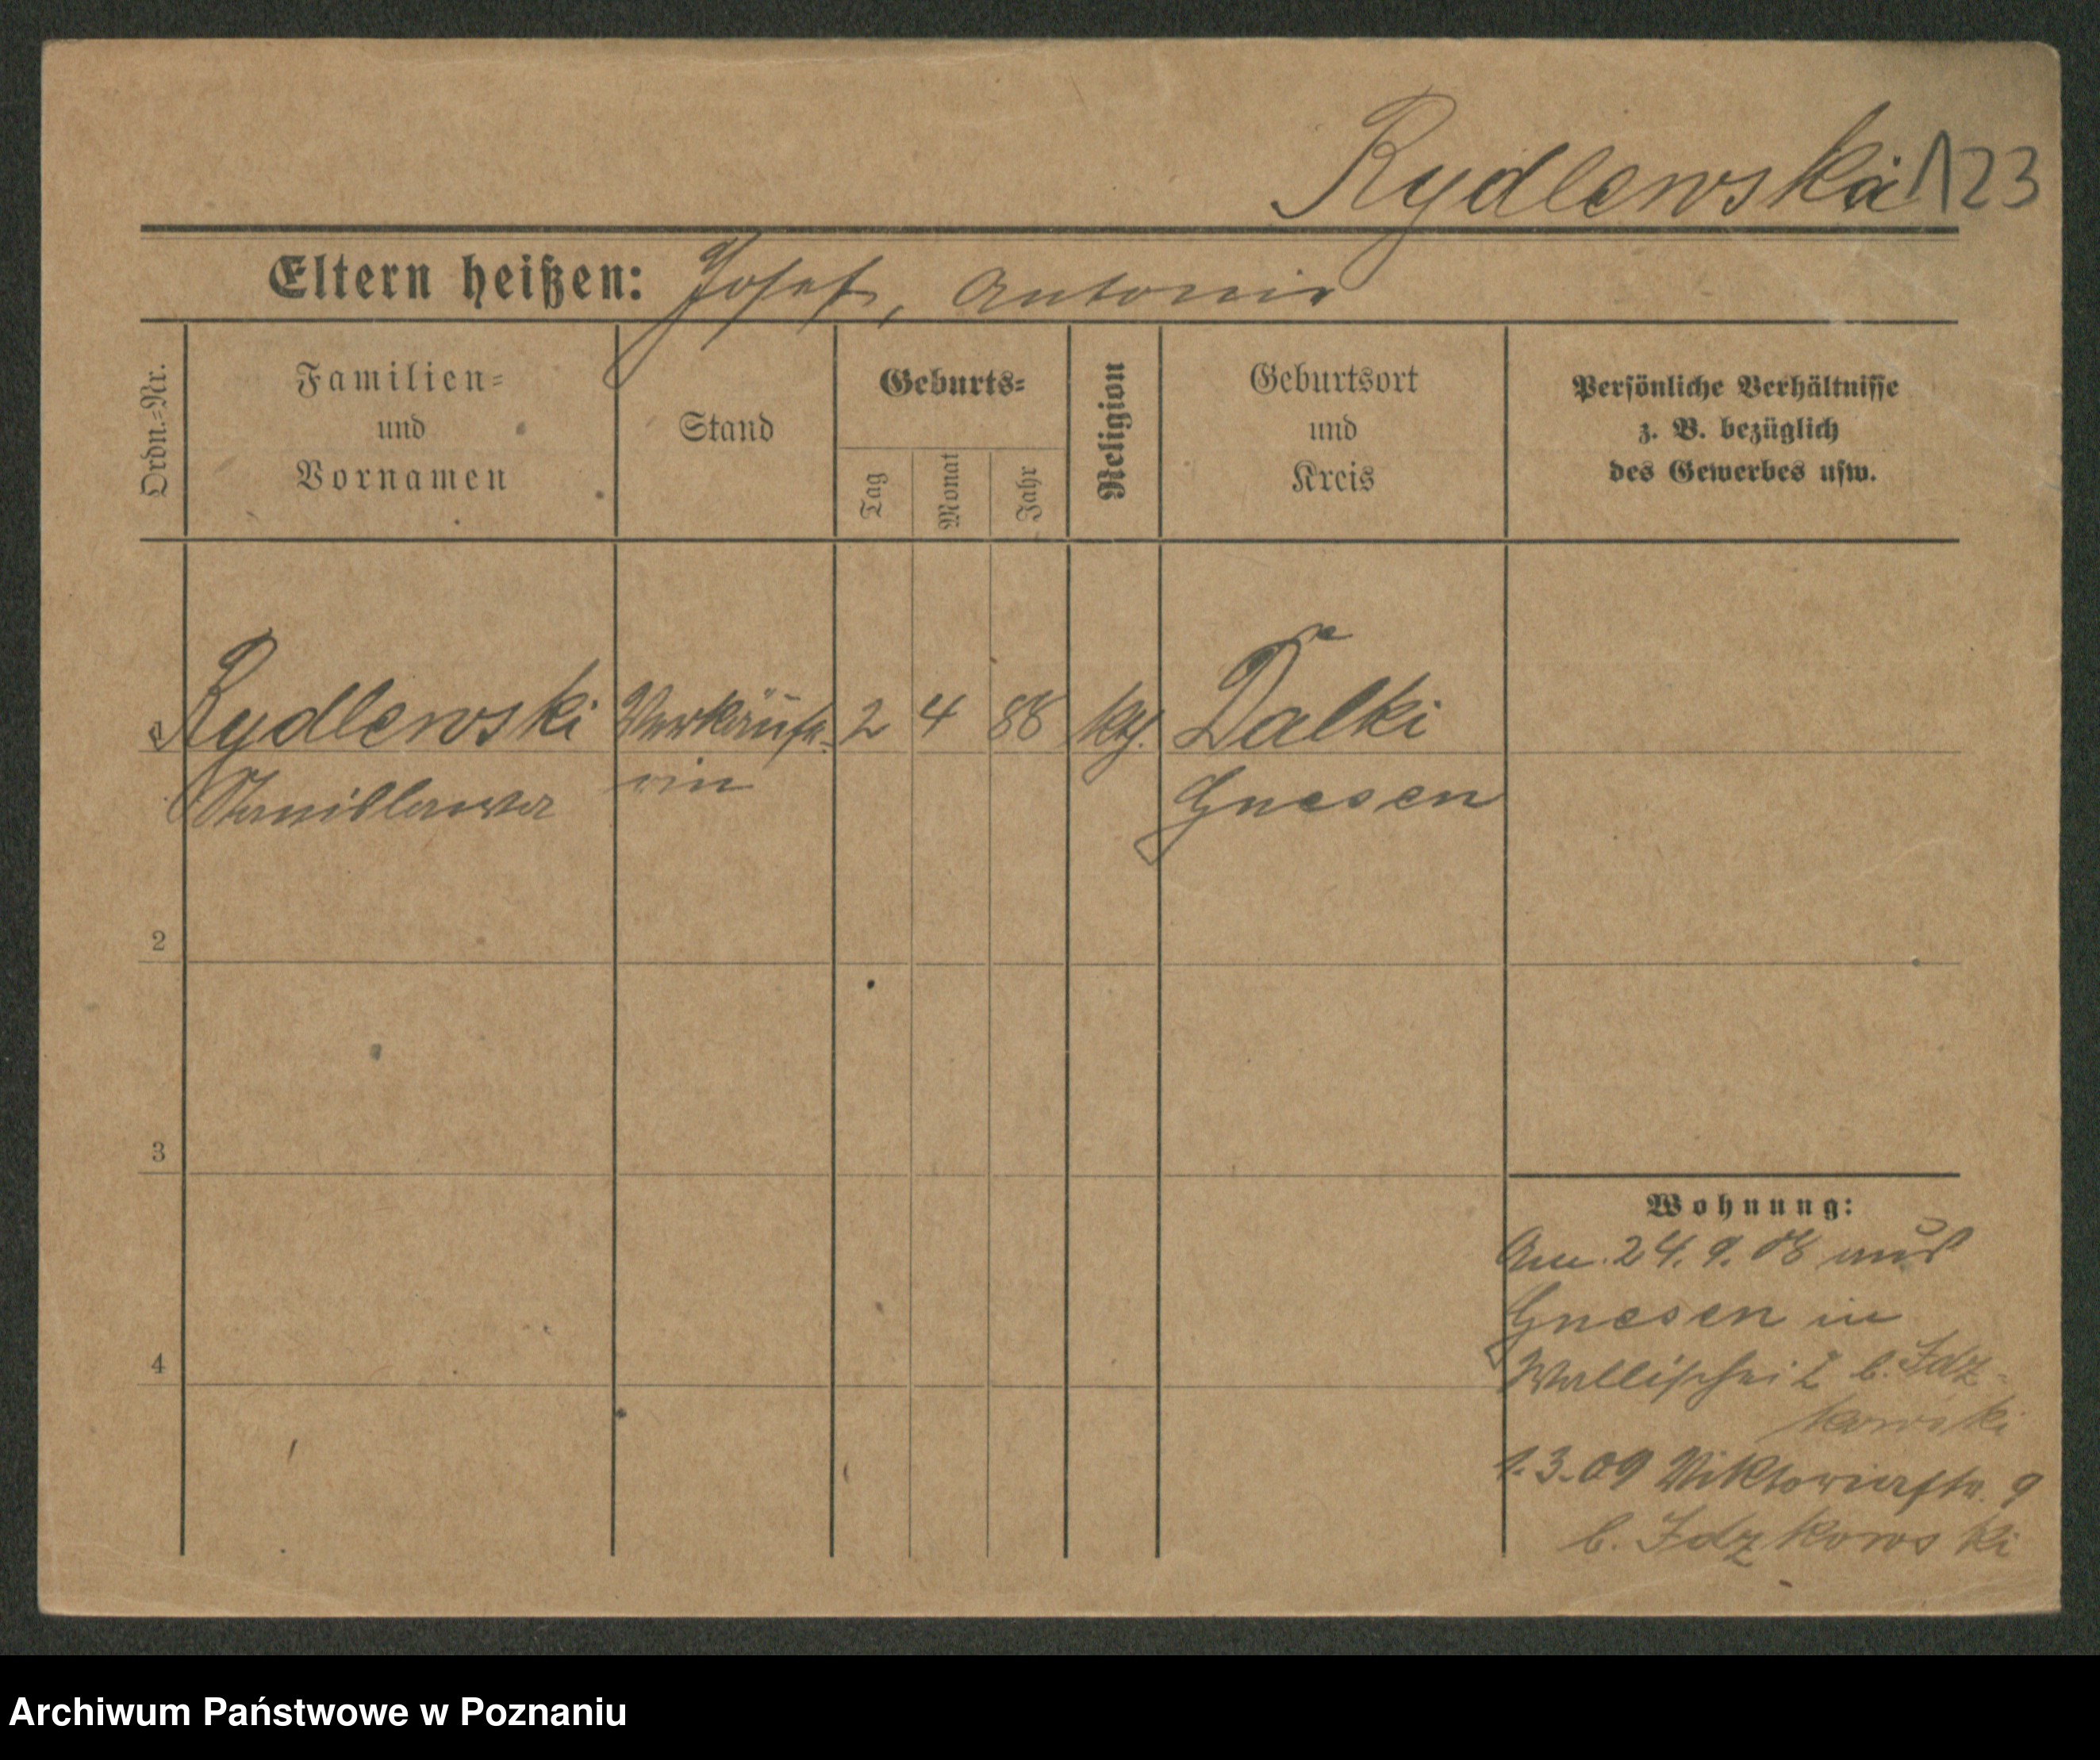 Rydlewska 123
Eltern heißen: Josef, Antonie
Ordn.-Nr.
Familien-
und
Vornamen
Stand
Geburts-
Tag
Monat
Jahr
Religion
Geburtsort
und
Kreis
Persönliche Verhältnisse
z. B. bezüglich
des Gewerbes usw.
Rydlewski Verkäufe- 2 4 88 kth. Dalki
Stanislawa rin Gnesen
2
3
4
Wohnung:
Am 24. 9. 08 aus
Gnesen in
Wallischei 2 b. Idz-
kowski
1.3.09 Viktoriastr. 9
b. Idzkowski
Archiwum Państwowe w Poznaniu